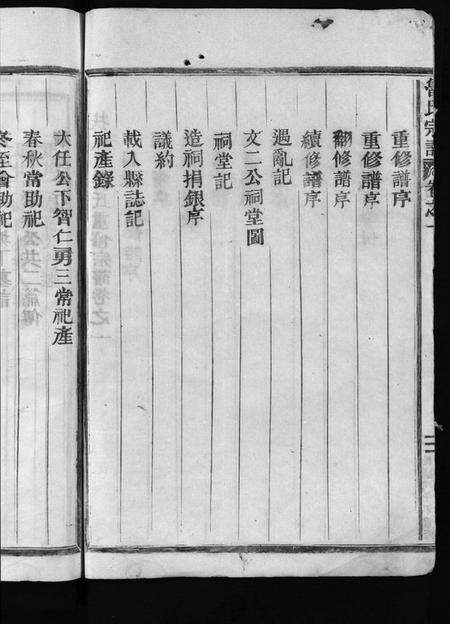 重修譜序
重修譜序
翻修譜序
續修譜序
遇亂記
文二公祠堂圖
祠堂記
造祠捐銀序
議約
載入縣誌記
祀產錄
大任公下智仁勇三常祀產
春秋常助祀
冬至會助祀